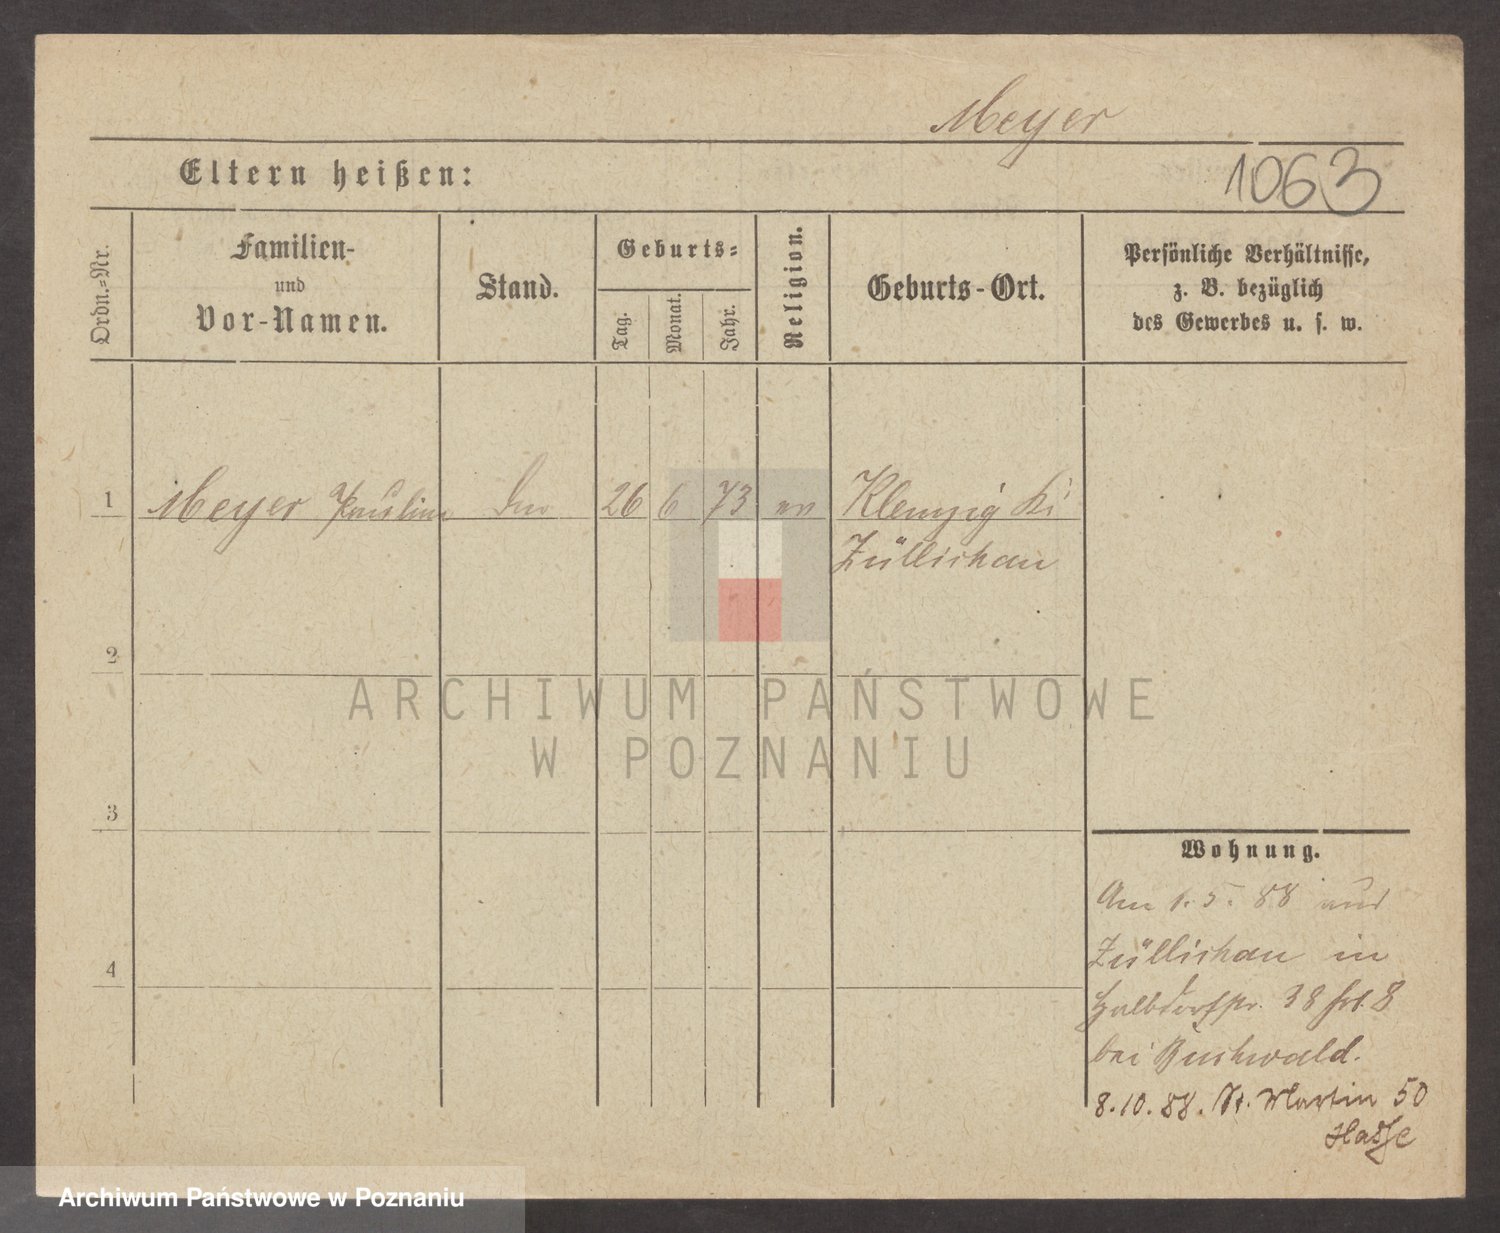 Meyer
Eltern heißen:
1063
Ordn.-Nr.
Familien-
und
Vor-Namen.
Stand.
Geburts-
Tag.
Monat.
Jahr.
Religion.
Geburts-Ort.
Persönliche Verhältnisse,
z. B. bezüglich
des Gewerbes u. s. w.
1
Meyer Pauline
26
6
73
ev
Klemzig Kr
Züllichau
2
ARCHIWUM PAŃSTWOWE
W POZNANIU
3
Wohnung.
Am 1.5.88 aus
Züllichau in
4
Halbdorfstr. 38
bei Buchwald.
8.10.88. St. Martin 50
Archiwum Państwowe w Poznaniu